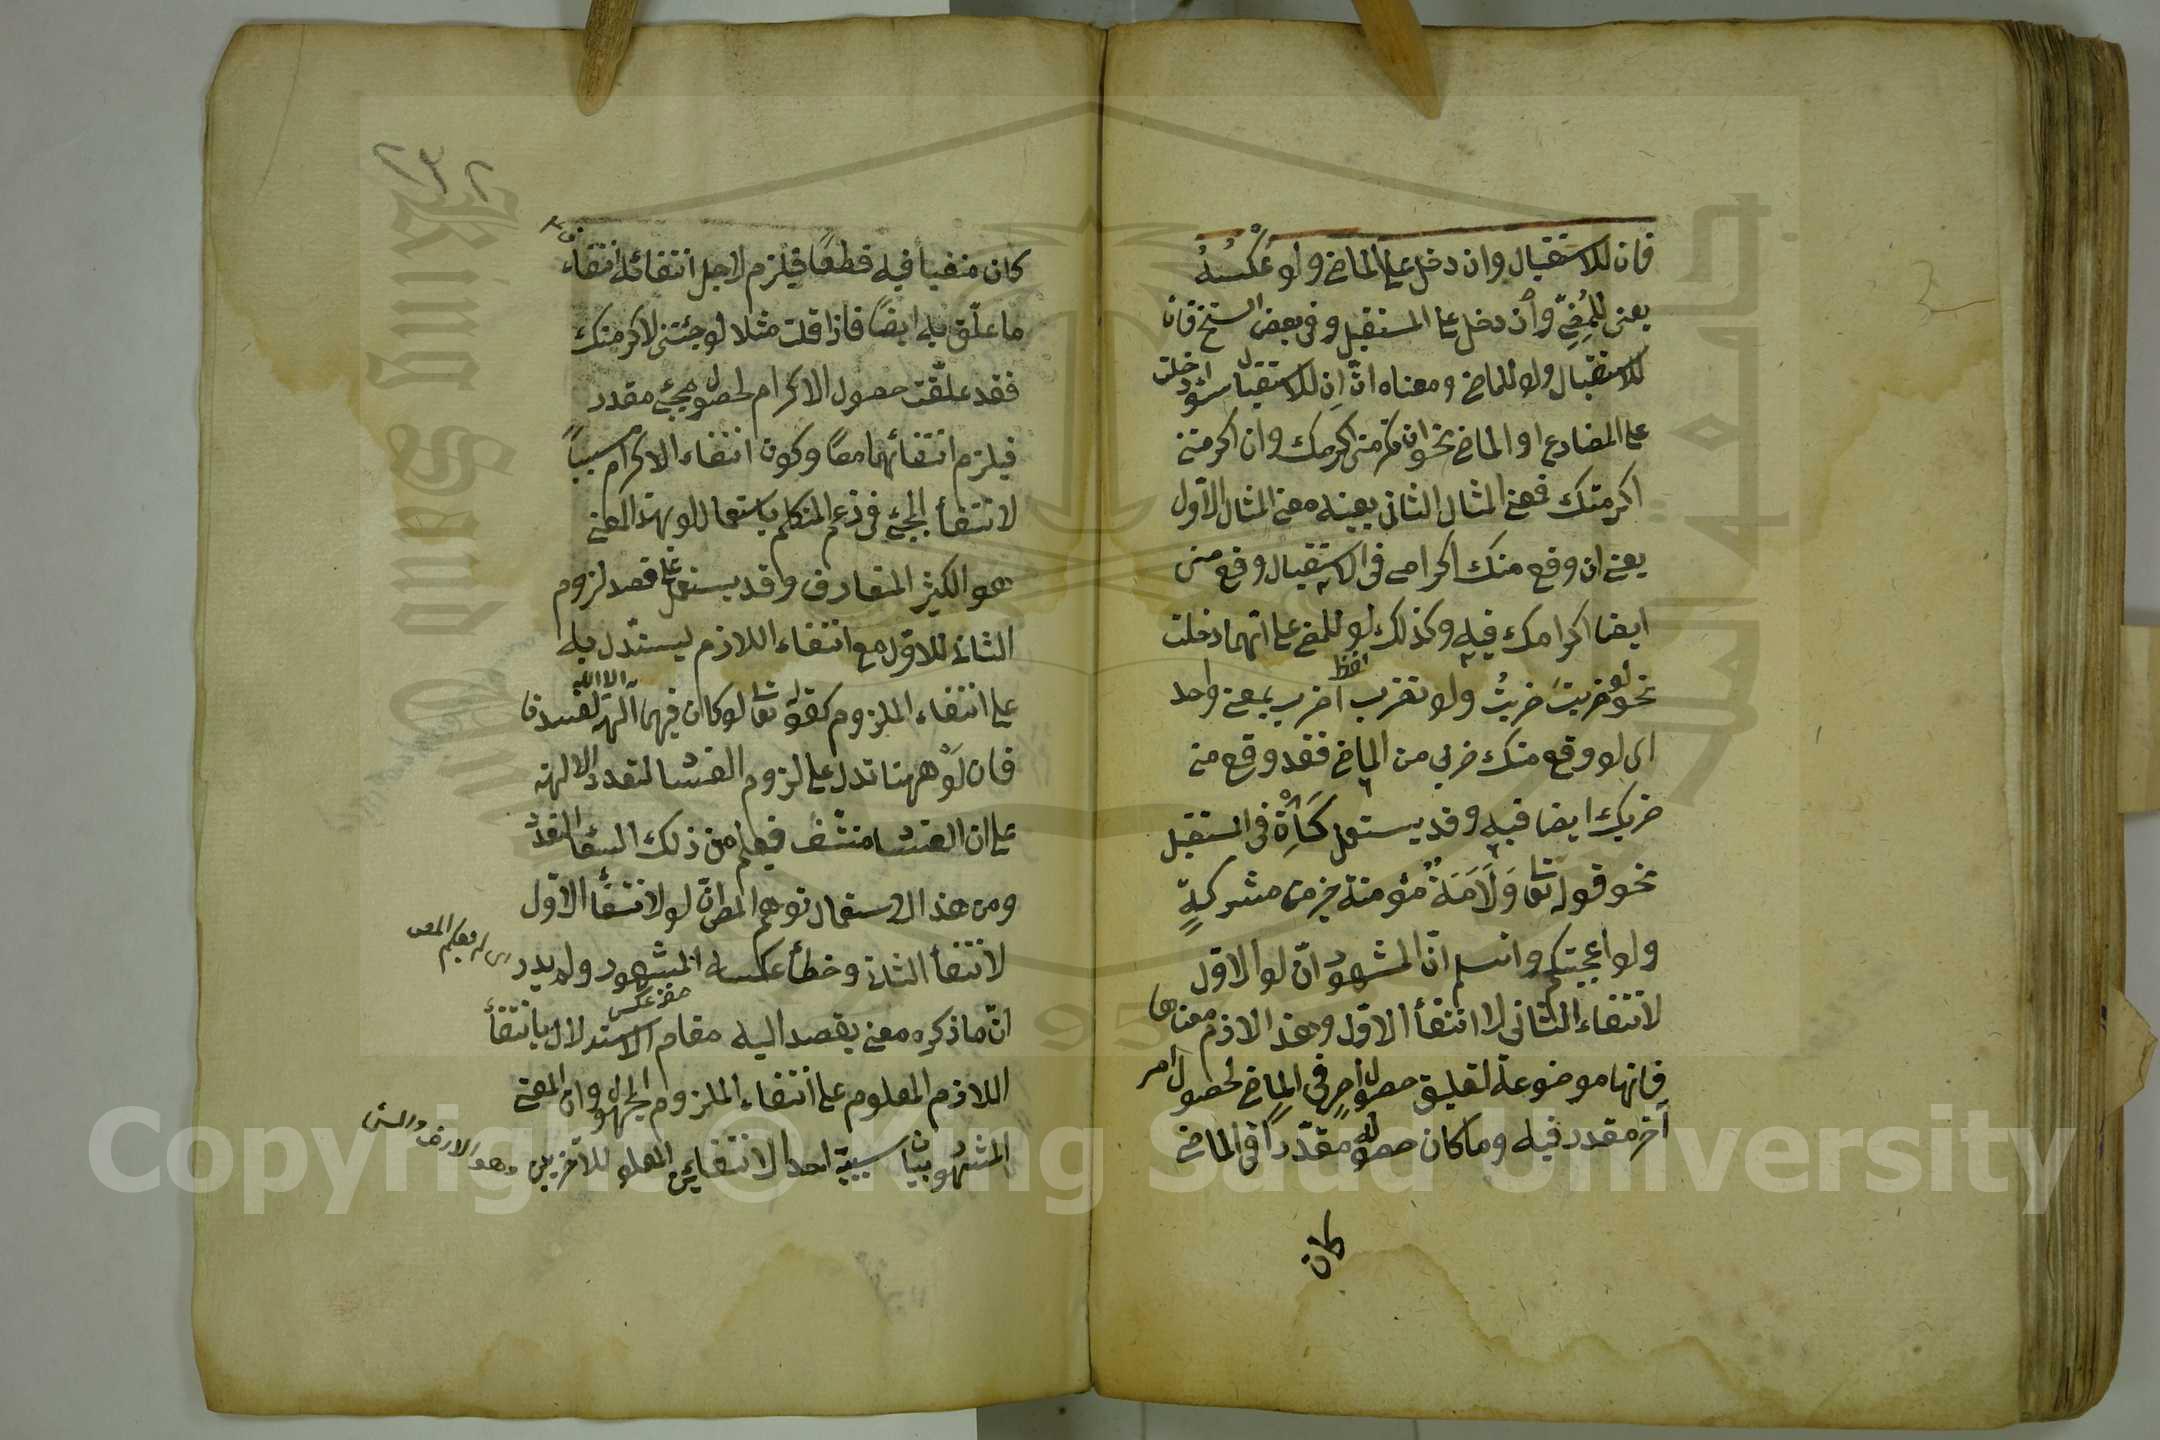 فان للاستقبال وان دخل على الماضي ولو عَكْسُهُ
يعني للمُضِيّ وأن دخل على المستقبل وفي بعض النسخ فان
للاستقبال ولو للماضي ومعناه انّ اِن للاستقبال سواء دخلت
على المضارع او الماضي نحو ان تكرمني اكرمك وان اكرمتني
اكرمتك فمعنى المثال الثاني بعينه معنى المثال الاول
يعني ان وقع منك اكرامي في الاستقبال وقع مني
ايضا اكرامك فيه وكذلك لو للمضي على ايّهما دخلت
نحو لو ضربتَ ضربتُ ولو تضرب اضرب بمعنى واحد
اى لو وقع منك ضربي من الماضي فقد وقع مني
ضربك ايضا فيه وقد يستعمل كَاِنْ في المستقبل
نحو قوله تعا وَلَاَمَةٌ مؤمنة خير من مشركةٍ
ولو اعجبتكم واعلم انّ المشهور انّ لو الاول
لانتفاء الثاني لا انتفأ الاول وهذا لازم معناها
فانها موضوعة لتعليق حصول امرٍ في الماضي لحصول امر
آخر مقدر فيه وما كان حصوله مقدّراً في الماضي
كان
كان منفيا فيه قطعًا فيلزم لاجل انتفائه انتفاء
ما علّق به ايضًا فاذا قلت مثلا لو جئتني لاكرمتك
فقد علّقت حصول الاكرام لحصول مجيئ مقدر
فيلزم انتفائهما معًا وكون انتفاء الاكرام مسبباً
لانتفأ المجئ في زعم المتكلم باستعمال لو بهذا المعنى
هو الكثير المتعارف وقد يستعمل على قصد لزوم
الثاني للاول مع انتفاء اللازم ليستدل به
على انتفاء الملزوم كقوله تعا لو كان فيهما آلهة الا الله لفسدتا
فان لَوْ ههنا تدل على لزوم الفساد لتعدد الالهة
على ان الفساد منتف فيعلم من ذلك انتفأ التعدد
ومن هذا الاستعمال توهم المط انّ لو لانتفأ الاول
لانتفأ الثاني وخطأ عكسه المشهور ولم يدر
انّ ما ذكره معنى يقصد اليه مقام الاستدلال بانتفأ
اللازم المعلوم على انتفاء الملزوم المجهول وان المعنى
المشهور بيان سببية احد الانتفائين المعلو للآخر
King Saud University
1957
Copyright © King Saud University